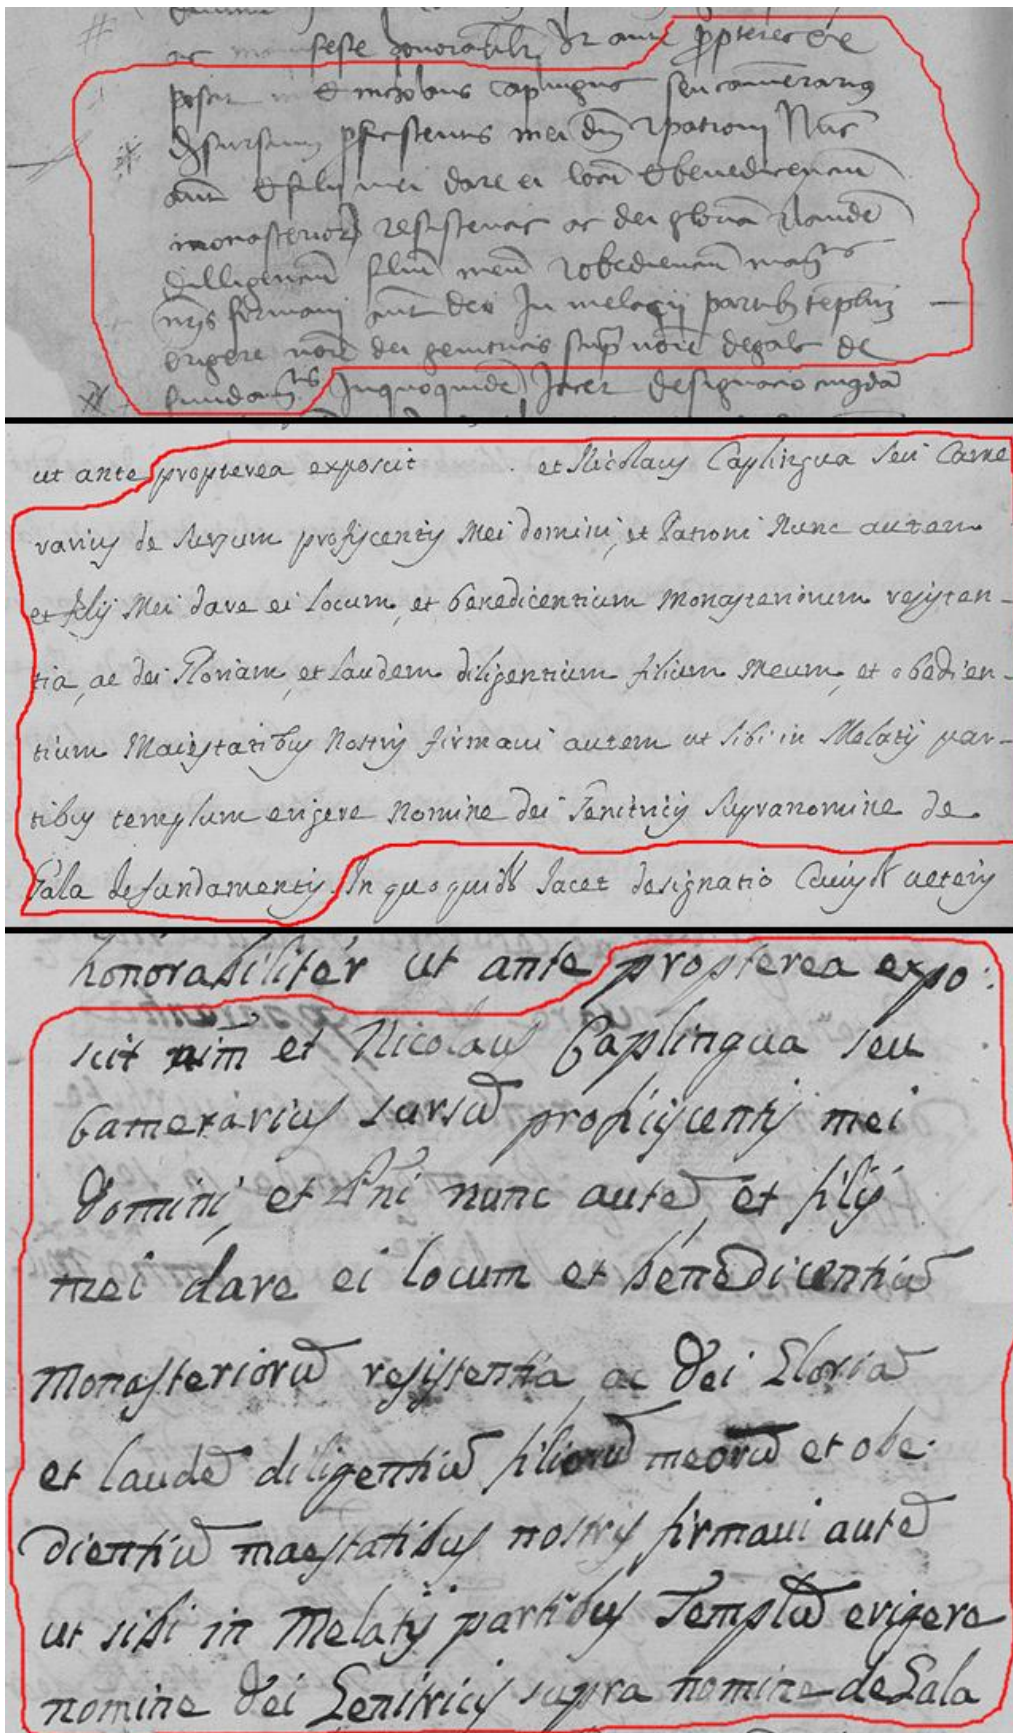 ac sese honorabilr ut ante propterea
et nicolaus Caplingua seu camerarius
mei dni et patroni Nunc
aut et filij mei dare ei locu et benedicenciu
monasterior resistencia ac dei gloria et laude
dilligenciu filiu meu et obedienciu
nris firmavi aut in melacij partib templu
erigere noie dei genitricis sup noie degala de
fundamtis Inquoquidē Jacet designacio cuiusdā
ut ante propterea exposcit et Nicolaus Caplingua Seu Came
rarius de Sursum profiscentis Mei domini, et Patroni Nunc autem
et filij Mei dare ei locum, et benedicentium Monasteriorum resisten-
tia, ac dei Gloriam, et laudem diligentium filium Meum, et obedien-
tium Maiestatibus Nostris firmaui autem ut sibi in Melatij par-
tibus templum erigere Nomine dei Genitricis Supranomine de
Gala de fundamentis In quo quidē Jacet designatio Cuiusdē ueteris
honorabiliter ut ante propterea expo:
scit et Nicolaus Caplingua seu
Camerarius sursū proficiscentis mei
domini, et Pni nunc autē, et filij
mei dare ei locum et benedicentiū
Monasteriorū resistentia ac Dei Gloriā
et laudē diligentiū filiorū meorū et obe:
dientiū maestatibus nostris firmaui autē
ut sibi in Melatij partibus Templū erigere
nomine Dei Genitricis supra nomine de Gala